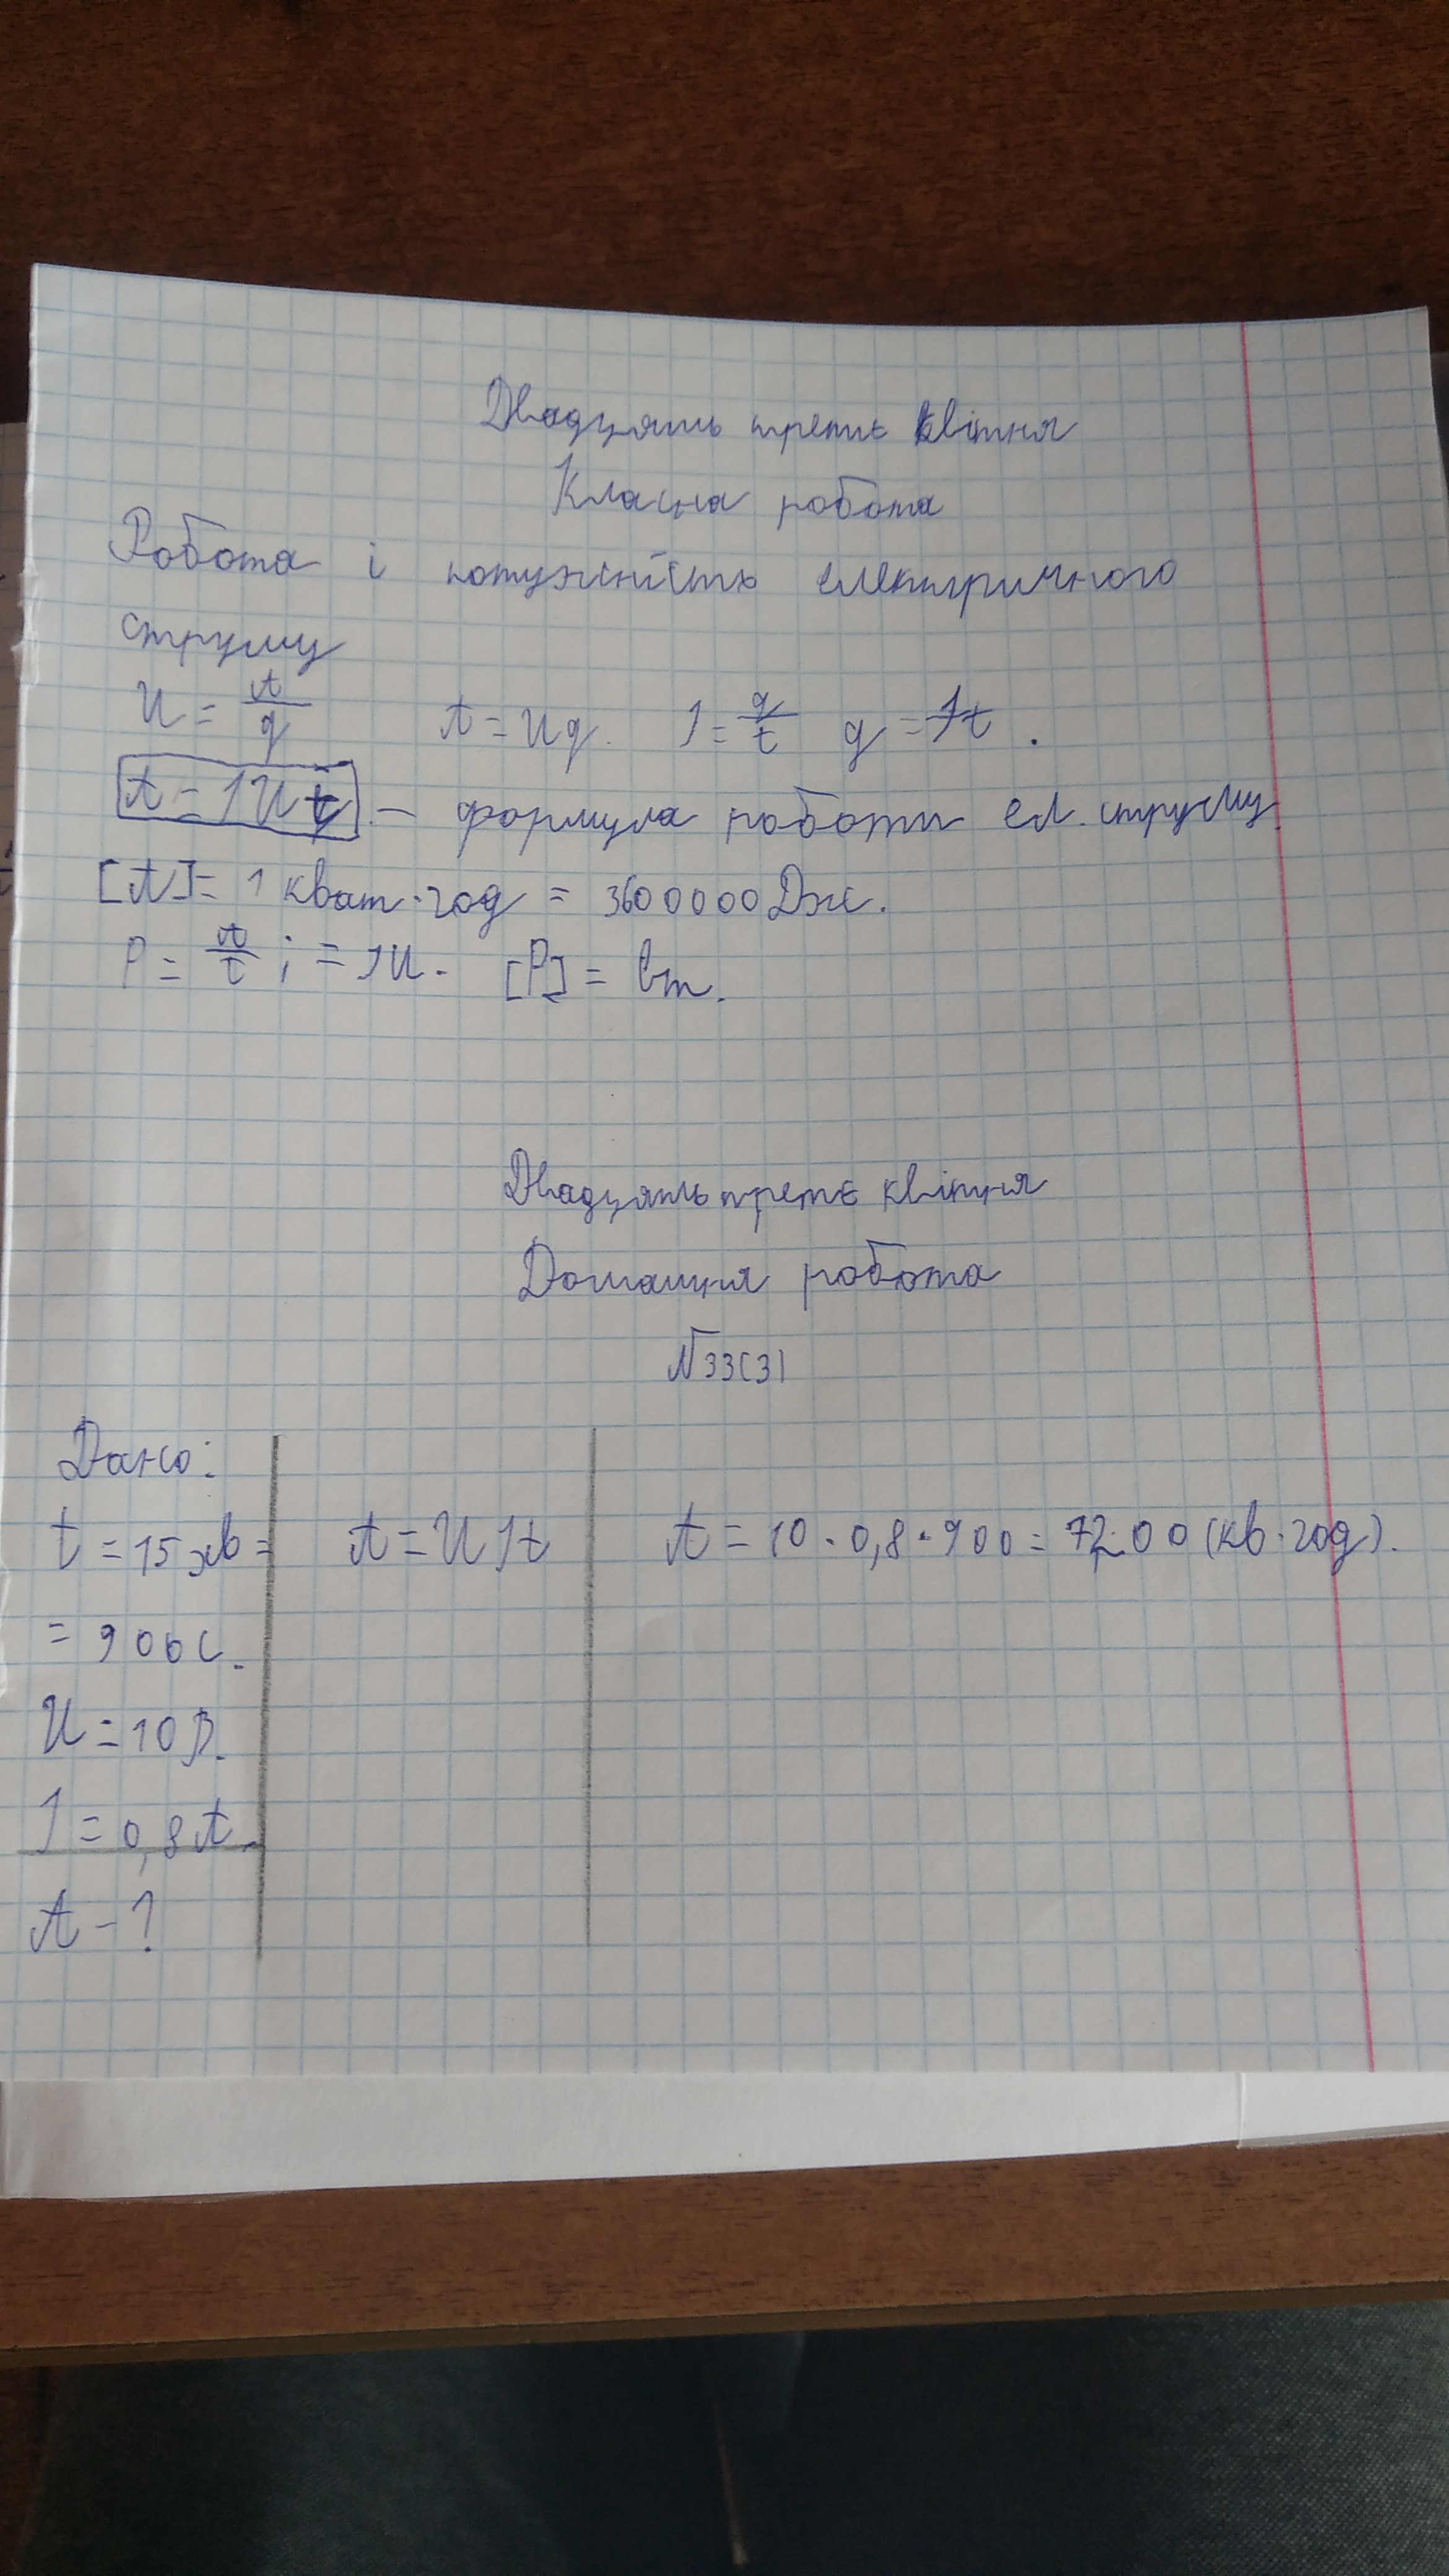 Двадцять третє квітня
Класна робота
Робота і потужність електричного
струму
U = A/q   A = Uq.   I = q/t   q = It.
A = IUt. – формула роботи ел. струму.
[A] = 1 кват·год = 3600000 Дж.
P = A/t ; = IU.   [P] = Вт.
Двадцять третє квітня
Домашня робота
№33(3)
Дано:
t = 15 хв =   A = UIt   A = 10 · 0,8 · 900 = 7200 (кв·год).
= 900 с.
U = 10 В.
I = 0,8 A.
A - ?